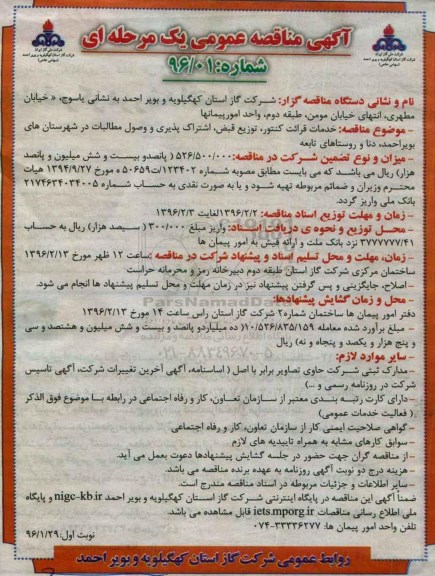 آگهی مناقصه عمومی یک مرحله ای
شماره: ۹۶/۰۱
نام و نشانی دستگاه مناقصه گزار: شرکت گاز استان کهگیلویه و بویر احمد به نشانی یاسوج، « خیابان
مطهری، انتهای خیابان مومن، طبقه دوم، واحد امورپیمانها
- موضوع مناقصه: خدمات قرائت کنتور، توزیع قبض، اشتراک پذیری و وصول مطالبات در شهرستان های
بویراحمد، دنا و روستاهای تابعه
- میزان و نوع تضمین شرکت در مناقصه: ۵۲۶/۵۰۰/۰۰۰ ( پانصدو بیست و شش میلیون و پانصد
هزار) ریال می باشد که می بایست مطابق مصوبه شماره ۱۲۳۴۰۲/ت۵۰۶۵۹ه مورخ ۱۳۹۴/۹/۲۷ هیات
محترم وزیران و ضمائم مربوطه تهیه شود و یا به صورت نقدی به حساب شماره ۲۱۷۴۶۳۴۰۳۴۰۰۵
بانک ملی واریز گردد.
- زمان و مهلت توزیع اسناد مناقصه: ۱۳۹۶/۲/۲لغایت ۱۳۹۶/۲/۳
- محل توزیع و نحوه ی دریافت اسناد: واریز مبلغ ۳۰۰/۰۰۰ ( سیصد هزار) ریال به حساب
۳۷۷۷۷۷۷/۴۱ نزد بانک ملت و ارائه فیش به امور پیمان ها
- زمان، مهلت و محل تسلیم اسناد و پیشنهاد شرکت در مناقصه :ساعت ۱۲ ظهر مورخ ۱۳۹۶/۲/۱۳
ساختمان مرکزی شرکت گاز استان طبقه دوم دبیرخانه رمز و محرمانه حراست
- اصلاح، جایگزینی و پس گرفتن پیشنهاد نیز در زمان مهلت و محل تسلیم پیشنهاد ها انجام می شود.
- محل و زمان گشایش پیشنهادها:
دفتر امور پیمان ها ساختمان شماره۲ شرکت گاز استان راس ساعت ۱۴ مورخ ۱۳۹۶/۲/۱۳
- مبلغ برآورد شده معامله ۱۰/۵۲۶/۸۳۵/۱۵۹( ده میلیاردو پانصد و بیست و شش میلیون و هشتصد و سی
و پنج هزار و یکصد و پنجاه و نه) ریال
- سایر موارد لازم:
- مدارک ثبتی شرکت حاوی تصاویر برابر با اصل ( اساسنامه، آگهی آخرین تغییرات شرکت، آگهی تاسیس
شرکت در روزنامه رسمی و ...)
- دارای کارت رتبه بندی معتبر از سازمان تعاون، کار و رفاه اجتماعی در رابطه با موضوع فوق الذکر
( فعالیت خدمات عمومی)
- گواهی صلاحیت ایمنی کار از سازمان تعاون، کار و رفاه اجتماعی
- سوابق کارهای مشابه به همراه تاییدیه های لازم
- از مناقصه گران جهت حضور در جلسه گشایش پیشنهادها دعوت بعمل می آید.
- هزینه درج دو نوبت آگهی روزنامه به عهده برنده مناقصه می باشد.
- سایر اطلاعات و جزئیات مربوطه در اسناد مناقصه مندرج است.
ضمناً آگهی این مناقصه در پایگاه اینترنتی شرکت گاز استان کهگیلویه و بویر احمد nigc-kb.ir و پایگاه
ملی اطلاع رسانی مناقصات iets.mporg.ir قابل مشاهده می باشد.
تلفن واحد امور پیمان ها: ۳۳۳۳۶۲۷۷-۰۷۴
نوبت اول: ۹۶/۱/۲۹
روابط عمومی شرکت گاز استان کهگیلویه و بویر احمد